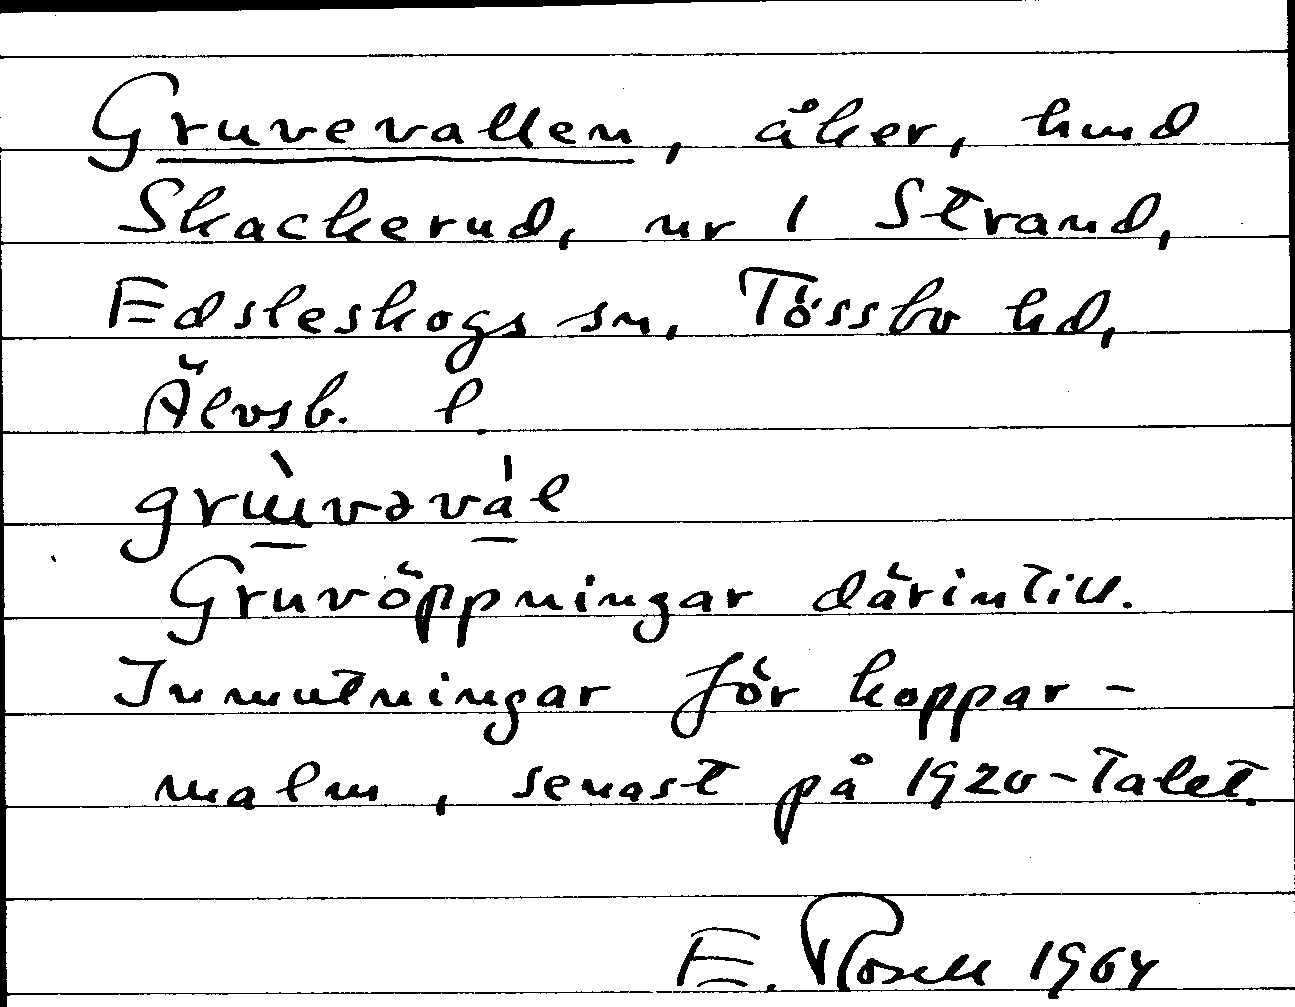 Gruvevallen, åker, hmd
Skackerud, nr 1 Strand,
Edsleskogs sn, Tössbo hd,
Älvsb. l.
grùvəvál
Gruvöppningar därintill.
Inmutningar för koppar-
malm, senast på 1920-talet.
E. Rosell 1964